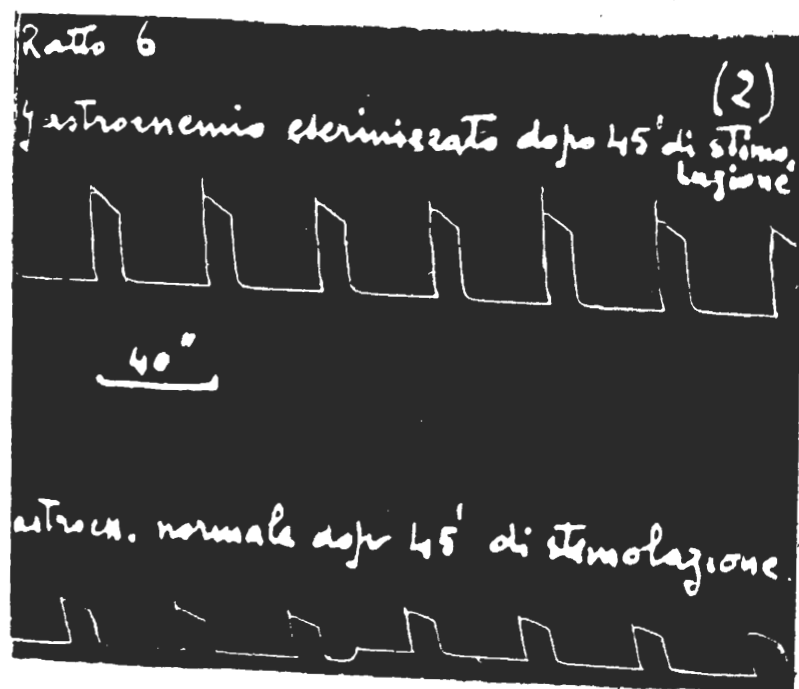 Ratto 6
(2)
gastrocnemio eserinizzato dopo 45' di stimo.
lazione
40"
astrocn. normale dopo 45' di stimolazione.